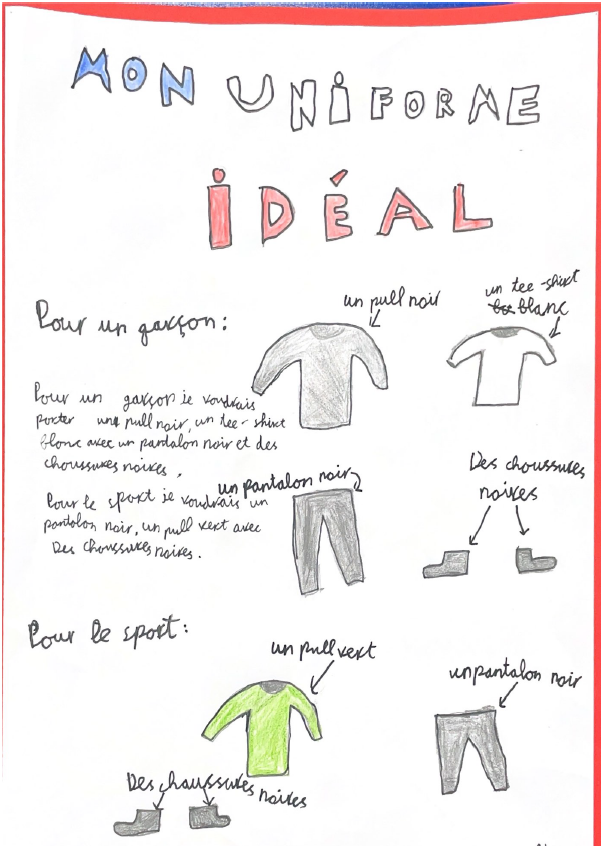 MON UNIFORME
IDÉAL
Pour un garçon:
un pull noir
un tee-shirt
blanc
Pour un garçon je voudrais
porter un pull noir, un tee-shirt
blanc avec un pantalon noir et des
choussures noires,
Pour le sport je voudrais un
pantalon noir, un pull vert avec
Des choussures noires.
un pantalon noir
Des choussures
noires
Pour le sport:
un pull vert
un pantalon noir
Des chaussures noires